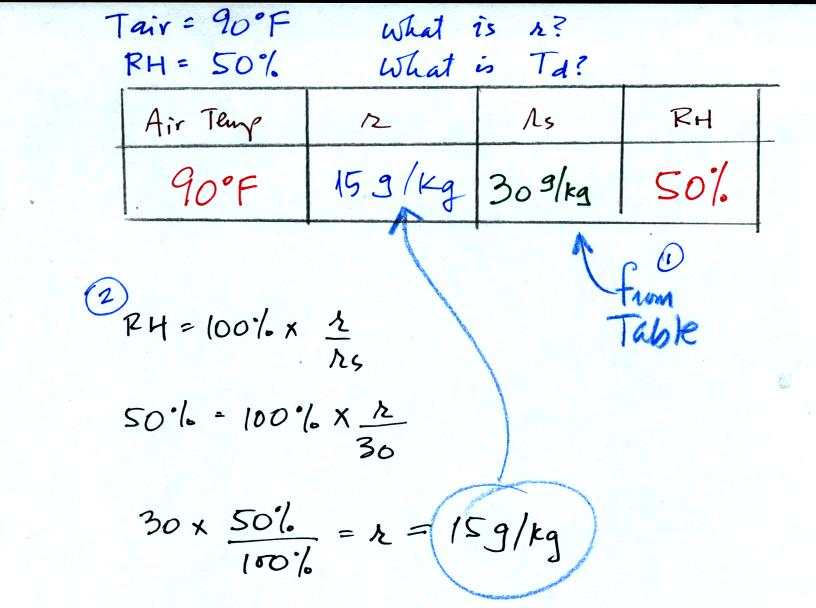 Tair = 90°F What is r?
RH = 50% What is Td?
Air Temp r rs RH
90°F 15 g/kg 30 g/kg 50%
① from
Table
②
RH = 100% x r/rs
50% = 100% x r/30
30 x 50%/100% = r = 15 g/kg